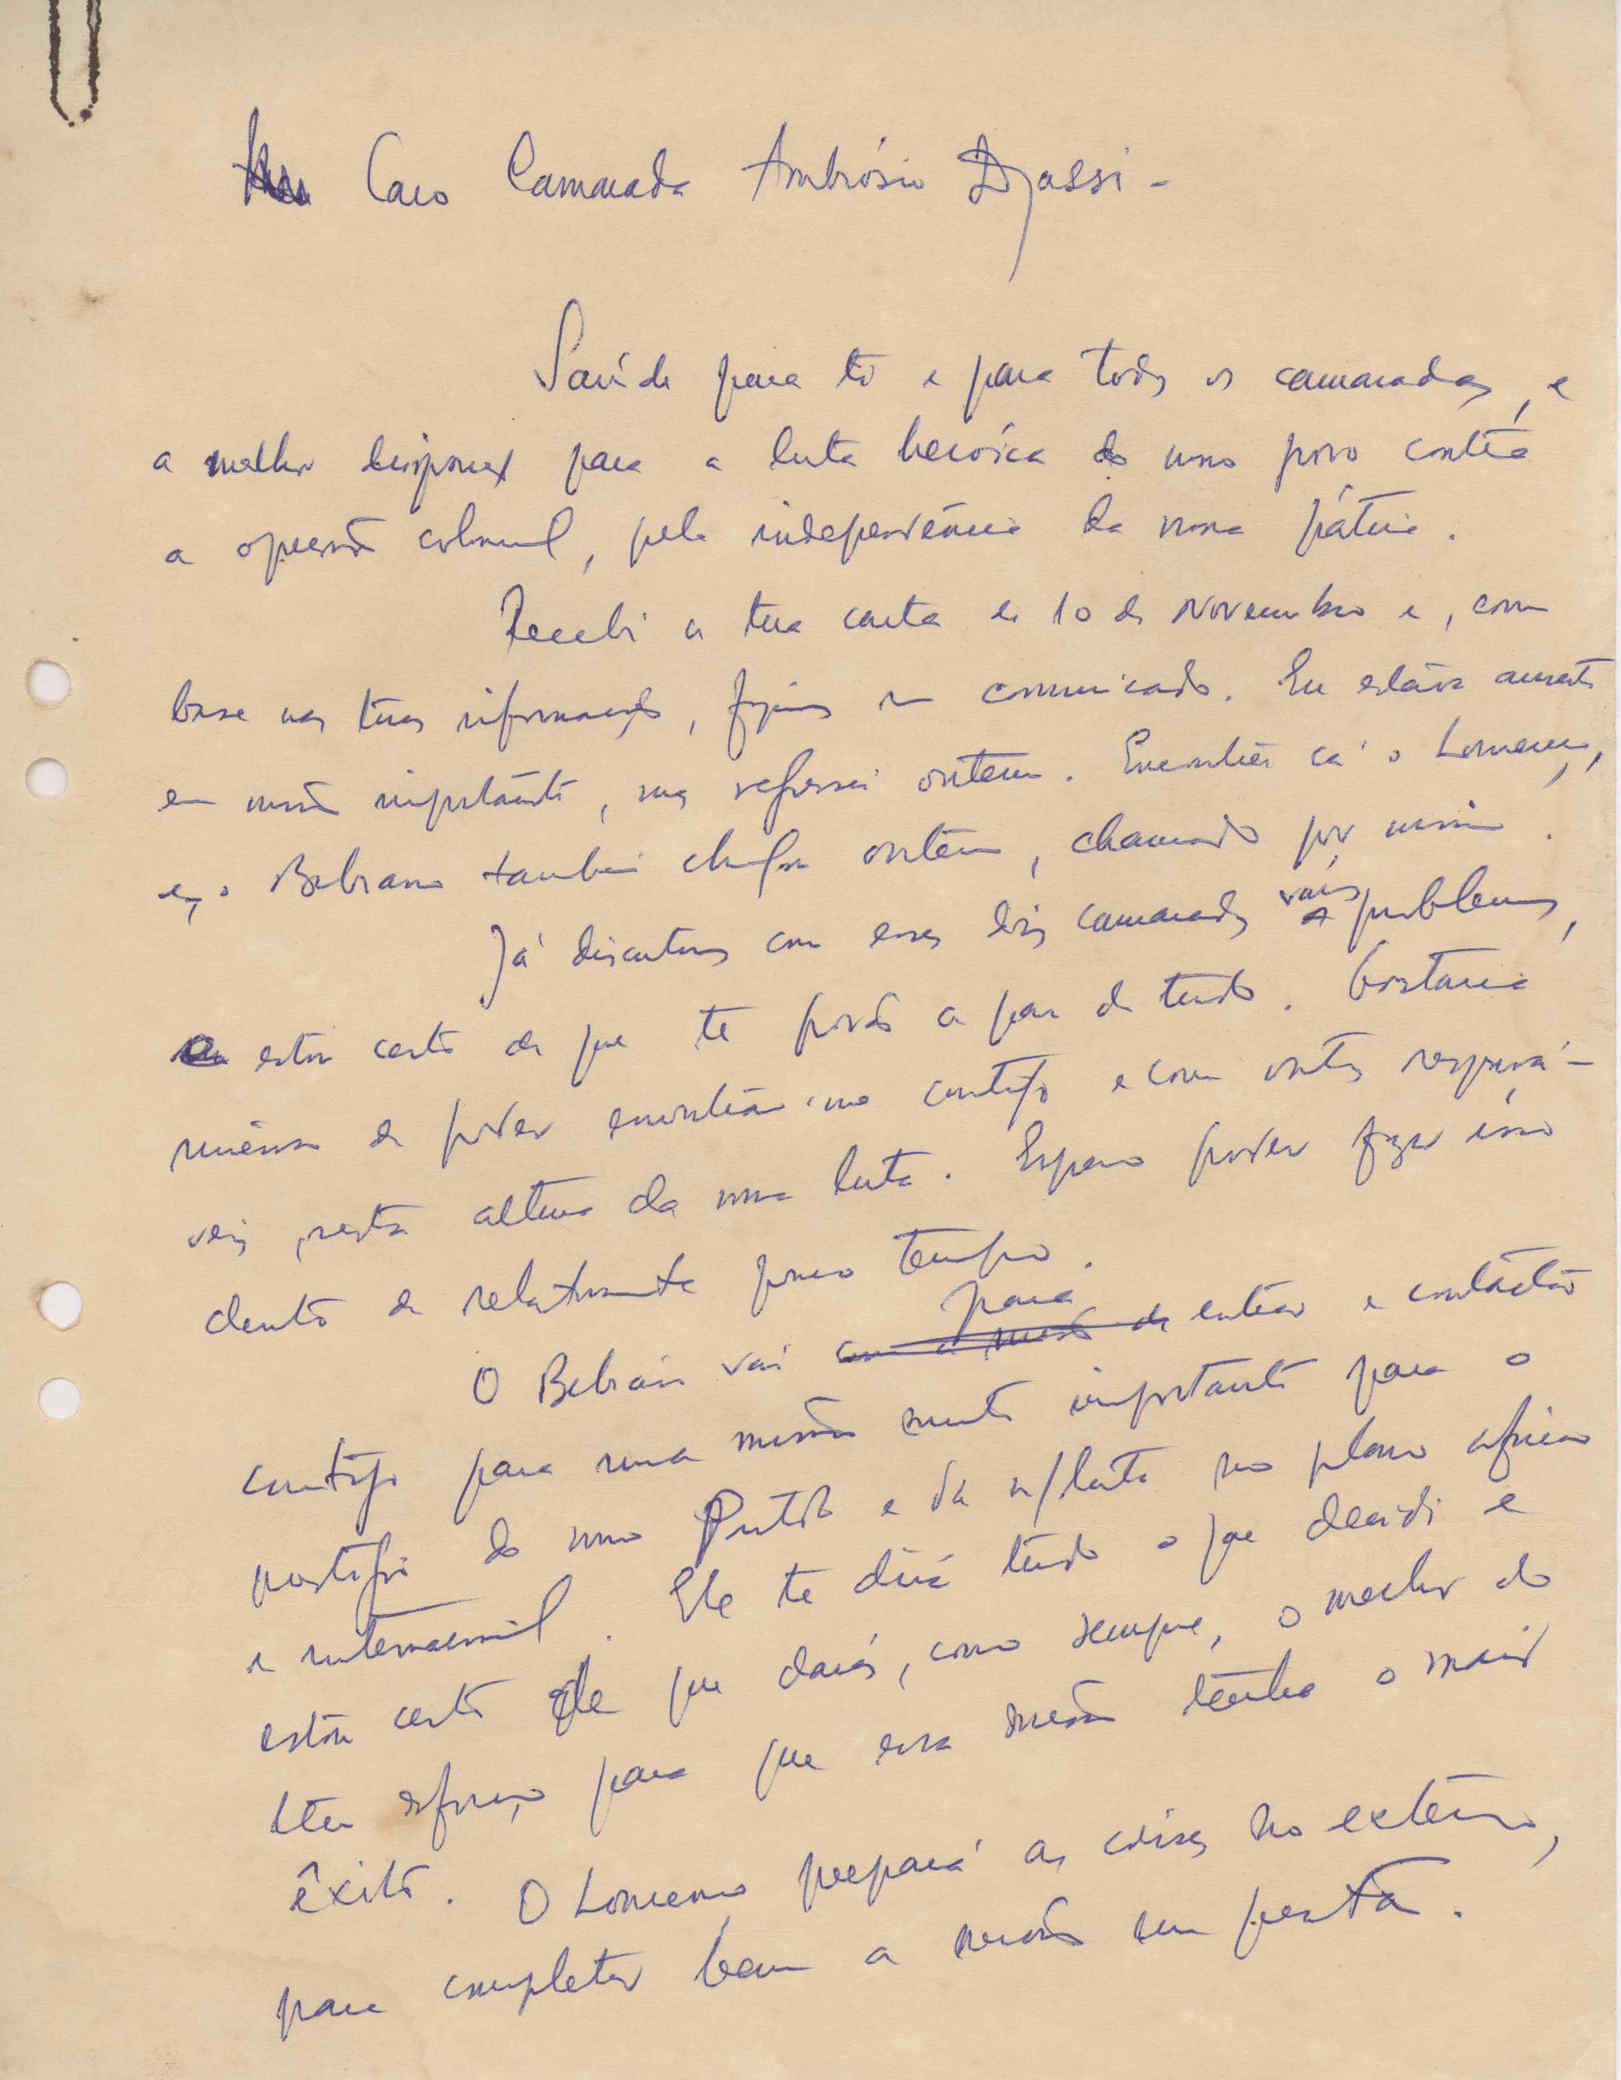 Caro Camarada Ambrósio Djassi -
Saúde para ti e para todos os camaradas, e
a melhor disposição para a luta heróica do nosso povo contra
a opressão colonial, pela independência da nossa pátria.
Recebi a tua carta de 10 de Novembro e, com
base nas tuas informações, fizemos um comunicado. Eu estava ausente
em missão importante, mas regressei ontem. Encontrei cá o Lourenço,
e, o Bobrano também chegou ontem, chamado por mim.
Já discutimos com esses dois camaradas vários problemas,
estou certo de que te porão a par de tudo. Gostaria
imenso de poder encontrar-me contigo e com outros responsá-
veis, nesta altura da nossa luta. Espero poder fazer isso
dentro de relativamente pouco tempo.
O Bobrán vai para entrar e contactar
contigo para uma missão muito importante para o
prestígio do nosso Partido e da n/luta no plano africano
e internacional. Ele te dirá tudo o que decidi e
estou certo de que darás, como sempre, o melhor do
teu esforço para que essa missão tenha o maior
êxito. O Lourenço preparará as coisas no exterior,
para completar bem a missão